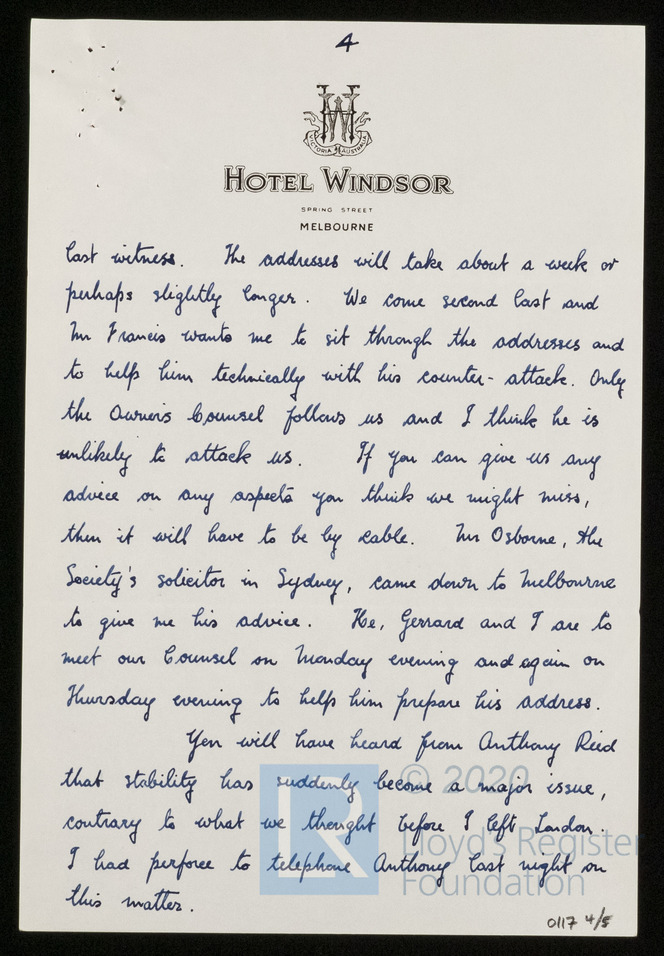 4
W
VICTORIA AUSTRALIA
HOTEL WINDSOR
SPRING STREET
MELBOURNE
last witness. The addresses will take about a week or
perhaps slightly longer. We come second last and
Mr Francis wants me to sit through the addresses and
to help him technically with his counter-attack. Only
the Owner's Counsel follows us and I think he is
unlikely to attack us. If you can give us any
advice on any aspects you think we might miss,
then it will have to be by cable. Mr Osborne, the
Society's solicitor in Sydney, came down to Melbourne
to give me his advice. He, Gerrard and I are to
meet our Counsel on Monday evening and again on
Thursday evening to help him prepare his address.
You will have heard from Anthony Reed
that stability has suddenly become a major issue,
contrary to what we thought before I left London.
I had perforce to telephone Anthony last night on
this matter.
© 2020
Lloyd's Register
Foundation
R
0117 4/5